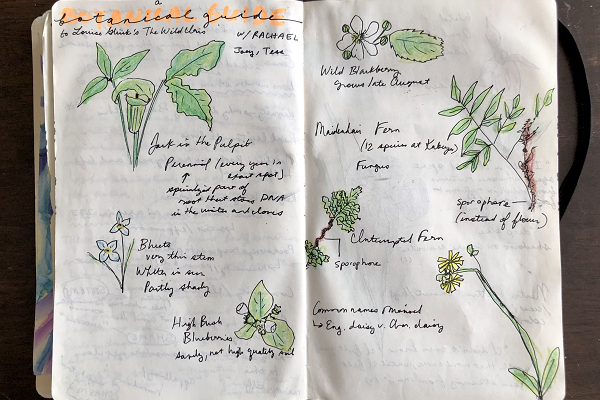 a
botanical guide
BOTANICAL GUIDE
to Louise Glück's The Wild Iris
w/ RACHAEL
Joey, Tess
Jack in the Pulpit
Perennial (every year in
exact spot)
specialized part of
root that stores DNA
in the winter and clones
Bluets
very thin stem
White in sun
Partly shady
High Bush
Blueberries
sandy, not high quality soil
Wild Blackberry
grows late August
Maidenhair Fern
(12 species at
Fungus
sporophore
(instead of flower)
Interrupted Fern
sporophore
Common names
↳ Eng. daisy v. daisy